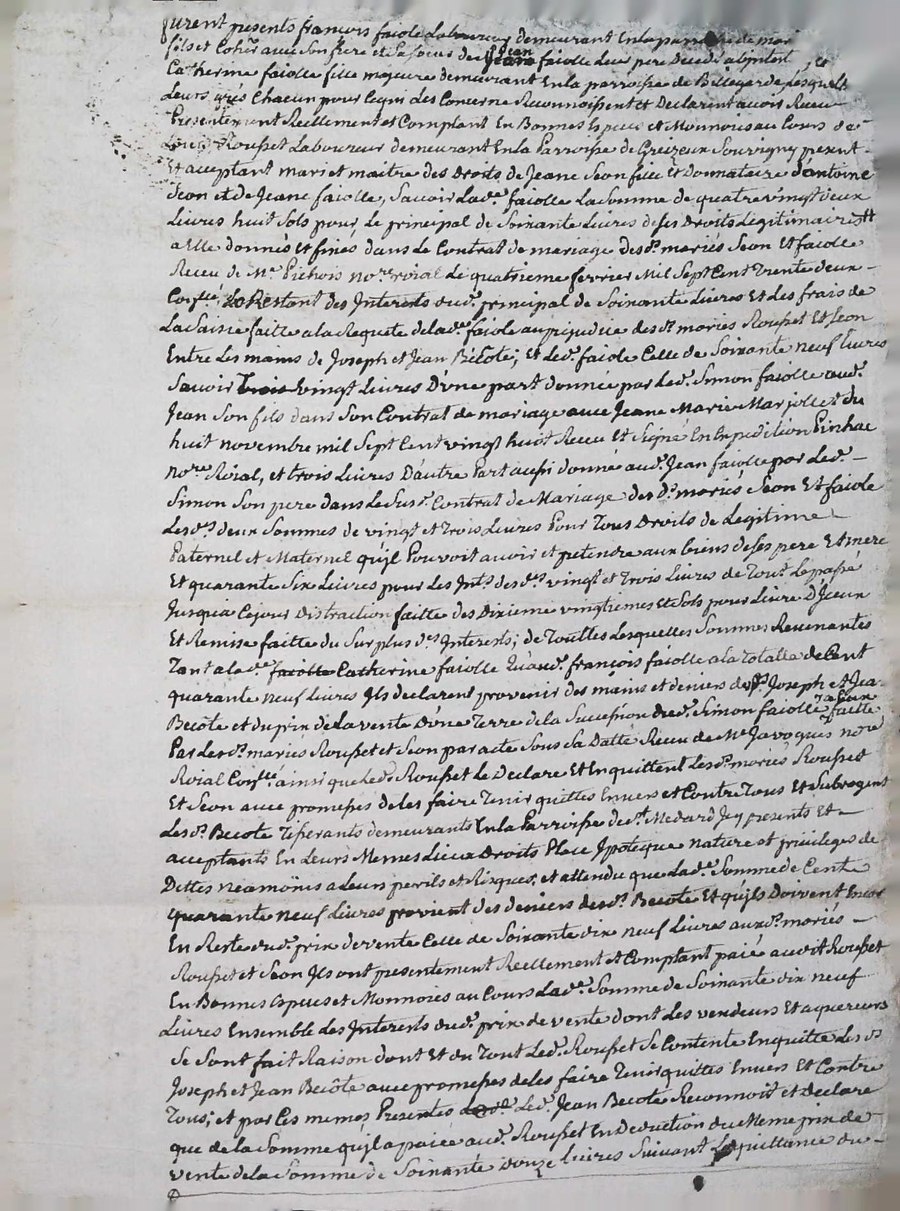 furent presents francois faiolle Laboureur demeurant En la parroisse de
fils et Coher avec Son frere et Sa soeur de Jean faiolle leur pere
Catherine faiolle fille majeure demeurant En la parroisse de Bellegarde Lesquels
Leurs grés Chacun pour Ce qui Les Concerne Reconnoissent et Declarent avoir Receu
Presentement Reellement et Comptant En Bonnes Especes et Monnois au Cours de
Louis Rousset Laboureur demeurant En la Parroisse de Grezieux Souvigny pesent
Et aceptant mari et maitre des Droits de Jeane Seon fille Et Donnataire d'antoine
Seon et de Jeane faiolle, Savoir Lad.e faiolle La Somme de quatre vingt deux
Livres huit Sols pour Le principal de Soixante Livres de Ses Droits Legitimaires
a Elle donnés et finés dans Le Contrat de mariage desd.s mariés Seon Et faiolle
Receu de Me Pichois no.re roial Le quatrieme fevrier Mil Sept Cent Trente deux
Con.lle Le Restant des Interests dud. principal de Soixante Livres Et Les frais de
La Saisie faitte a la Requete de lad.e faiole au prejudice desd.s mariés Rousset Et Seon
Entre Les mains de Joseph et Jean Becote; Et Led. faiole Celle de Soixante neuf Livres
Savoir vingt Livres D'une part donnée par Led. Simon faiolle aud.
Jean Son fils dans Son Contrat de mariage avec Jeane Marie Marjollet du
huit novembre mil Sept Cent vingt huit Receu Et Signé En Expedition Pinhac
no.re Roial, et trois Livres D'autre Part aussi donné aud. Jean faiolle par Led.
Simon Son pere dans Le Sus.d Contrat de Mariage desd.s mariés Seon Et faiole
Lesd.es deux Sommes de vingt et trois Livres Pour Tous Droits de Legitime
Paternel et Maternel qu'il Pouvoit avoir et pretendre aux biens de Ses pere Et mere
Et quarante Six Livres pour Les Int.s desd.es vingt et Trois Livres de Tout Le passé
Jusqua Ce jour Distraction faitte des Dixieme vingtiemes Et Sols pour Livre D'Iceux
Et Remise faitte du Surplus d.s Interests; de Touttes Lesquelles Sommes Revenantes
Tant a lad.e faiolle Catherine faiolle Qu'aud. francois faiolle a la totalle de Cent
quarante neuf Livres Ils declarent provenir des mains et deniers desd.s Joseph et Jean
Becote et du prix de la vente D'une Terre de la Succession dud. Simon faiolle a Eux faitte
Par Lesd.s mariés Rousset et Seon par acte Sous Sa Datte Receu de Me Javogues no.re
Roial Con.lle ainsi que Led. Rousset Le Declare Et En quittent Lesd.s mariés Rousset
Et Seon avec promesses de les faire Tenir quittes Envers et Contre Tous Et Subrogent
Lesd.s Becote demeurants En la Parroisse de St Medard Icy presents Et
aceptants En Leurs Memes Lieux Droits Place Ipoteque nature et privileges de
Dettes neamoins a Leurs perils et Risques, et attendu que Lad.e Somme de Cent
quarante neuf Livres provient des deniers desd.s Becote Et qu'ils Doivent Encor
En Reste dud. prix de vente Celle de Soixante dix neuf Livres auxd.s mariés
Rousset et Seon Ils ont presentement Reellement et Comptant paié audit Rousset
En Bonnes Especes et Monnoies au Cours Lad.e Somme de Soixante dix neuf
Livres Ensemble Les Interests dud. prix de vente dont Les vendeurs Et aquereurs
Se Sont fait Raison dont Et du Tout Led. Rousset Se Contente En quitte Lesd.s
Joseph et Jean Becote avec promesses de les faire Tenir quittes Envers Et Contre
Tous; et par Ces memes Presentes Led. Jean Becote Reconnoit et Declare
que de la Somme qu'il a paiée aud. Rousset En Deduction du Meme prix de
vente de la Somme de Soixante douze Livres Suivant La quittance du